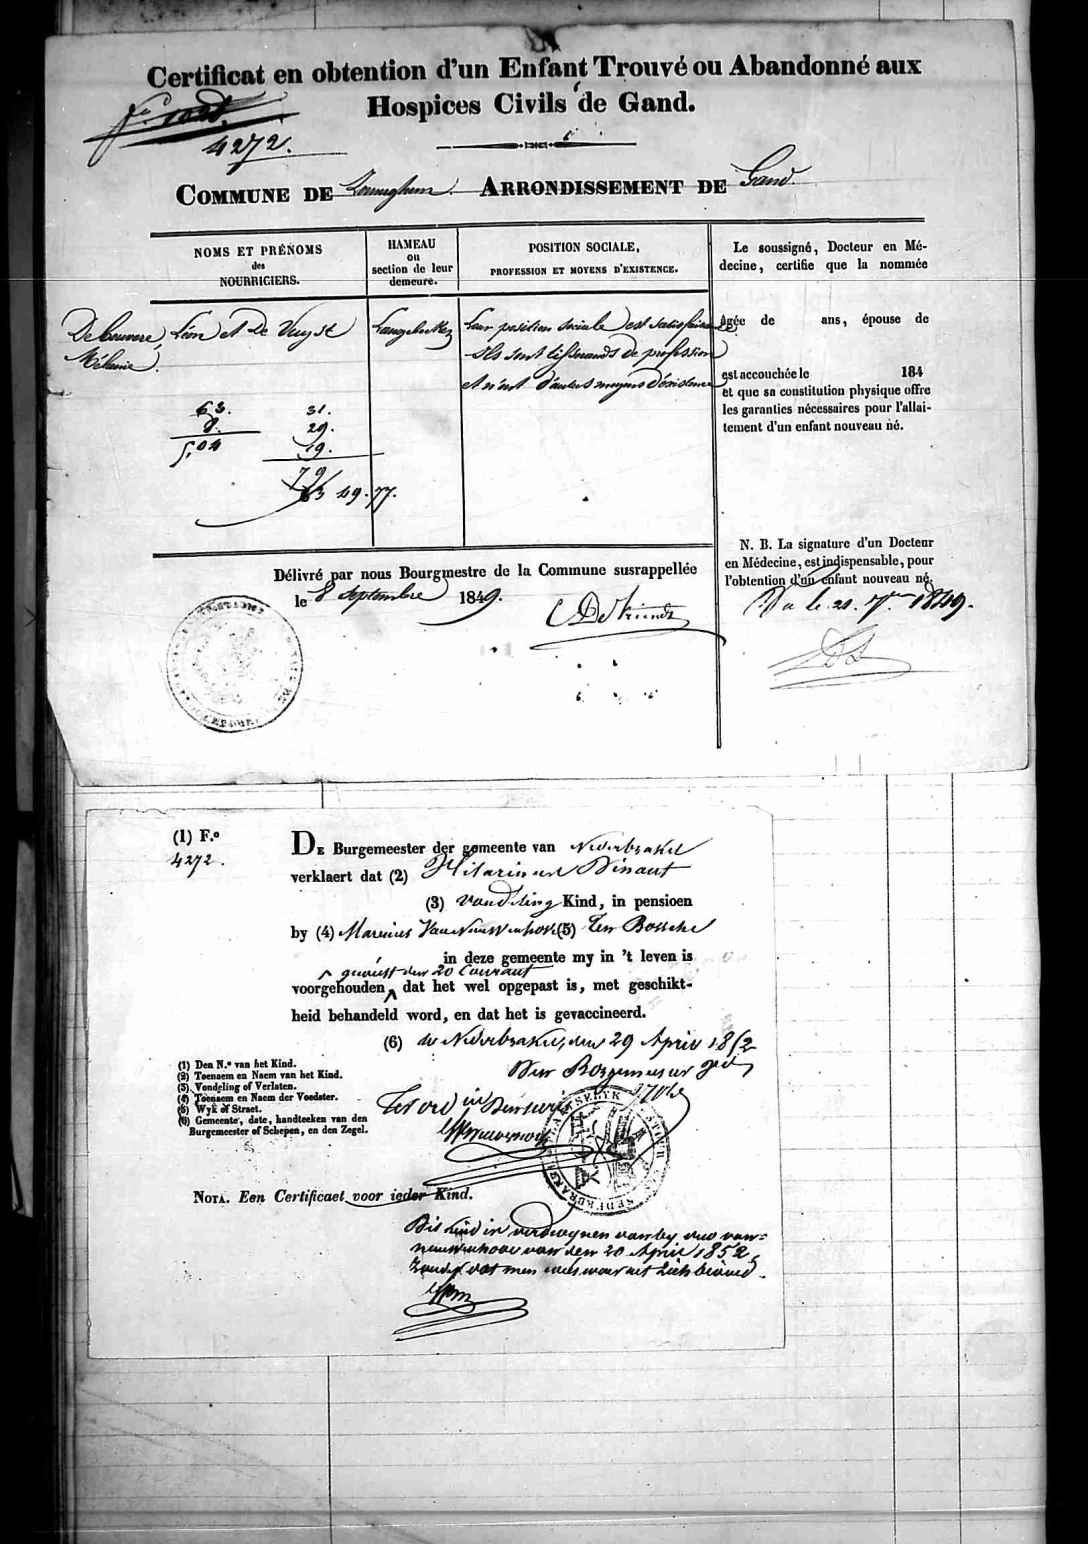 Certificat en obtention d'un Enfant Trouvé ou Abandonné aux
Hospices Civils de Gand.
4272.
COMMUNE DE ARRONDISSEMENT DE Gand.
NOMS ET PRÉNOMS
des
NOURRICIERS.
HAMEAU
ou
section de leur
demeure.
POSITION SOCIALE,
PROFESSION ET MOYENS D'EXISTENCE.
De Couvere, Léon et De Vuyst
Mélanie.
Leur position sociale est satisfaisante
Ils sont tisserands de profession
et n'ont d'autres moyens d'existence
63.
8.
5,04
31.
29.
19.
79
63 49.77.
Le soussigné, Docteur en Mé-
decine, certifie que la nommée
âgée de ans, épouse de
est accouchée le 184
et que sa constitution physique offre
les garanties nécessaires pour l'allai-
tement d'un enfant nouveau né.
N. B. La signature d'un Docteur
en Médecine, est indispensable, pour
l'obtention d'un enfant nouveau né.
Vu le 21. 7bre 1849.
Délivré par nous Bourgmestre de la Commune susrappellée
le 8 Septembre 1849.
(1) F.º
4272.
DE Burgemeester der gemeente van Nederbrakel
verklaert dat (2) Hilarion Dinaut
(3) vondeling Kind, in pensioen
by (4) Marinus Van Nieuwenhove (5) Ten Bossche
in deze gemeente my in 't leven is
geweest den 20 Courant
voorgehouden, dat het wel opgepast is, met geschikt-
heid behandeld word, en dat het is gevaccineerd.
(6) te Nederbrakel, den 29 April 1852
Den Borgemeester
(1) Den N.º van het Kind.
(2) Toenaem en Naem van het Kind.
(3) Vondeling of Verlaten.
(4) Toenaem en Naem der Voedster.
(5) Wyk of Straet.
(6) Gemeente, date, handteeken van den
Burgemeester of Schepen, en den Zegel.
NOTA. Een Certificaet voor ieder Kind.
Dit kind is verdwynen van by van
nieuwenhove van den 20 April 1852
zonder dat men weet waer het zich bevind.